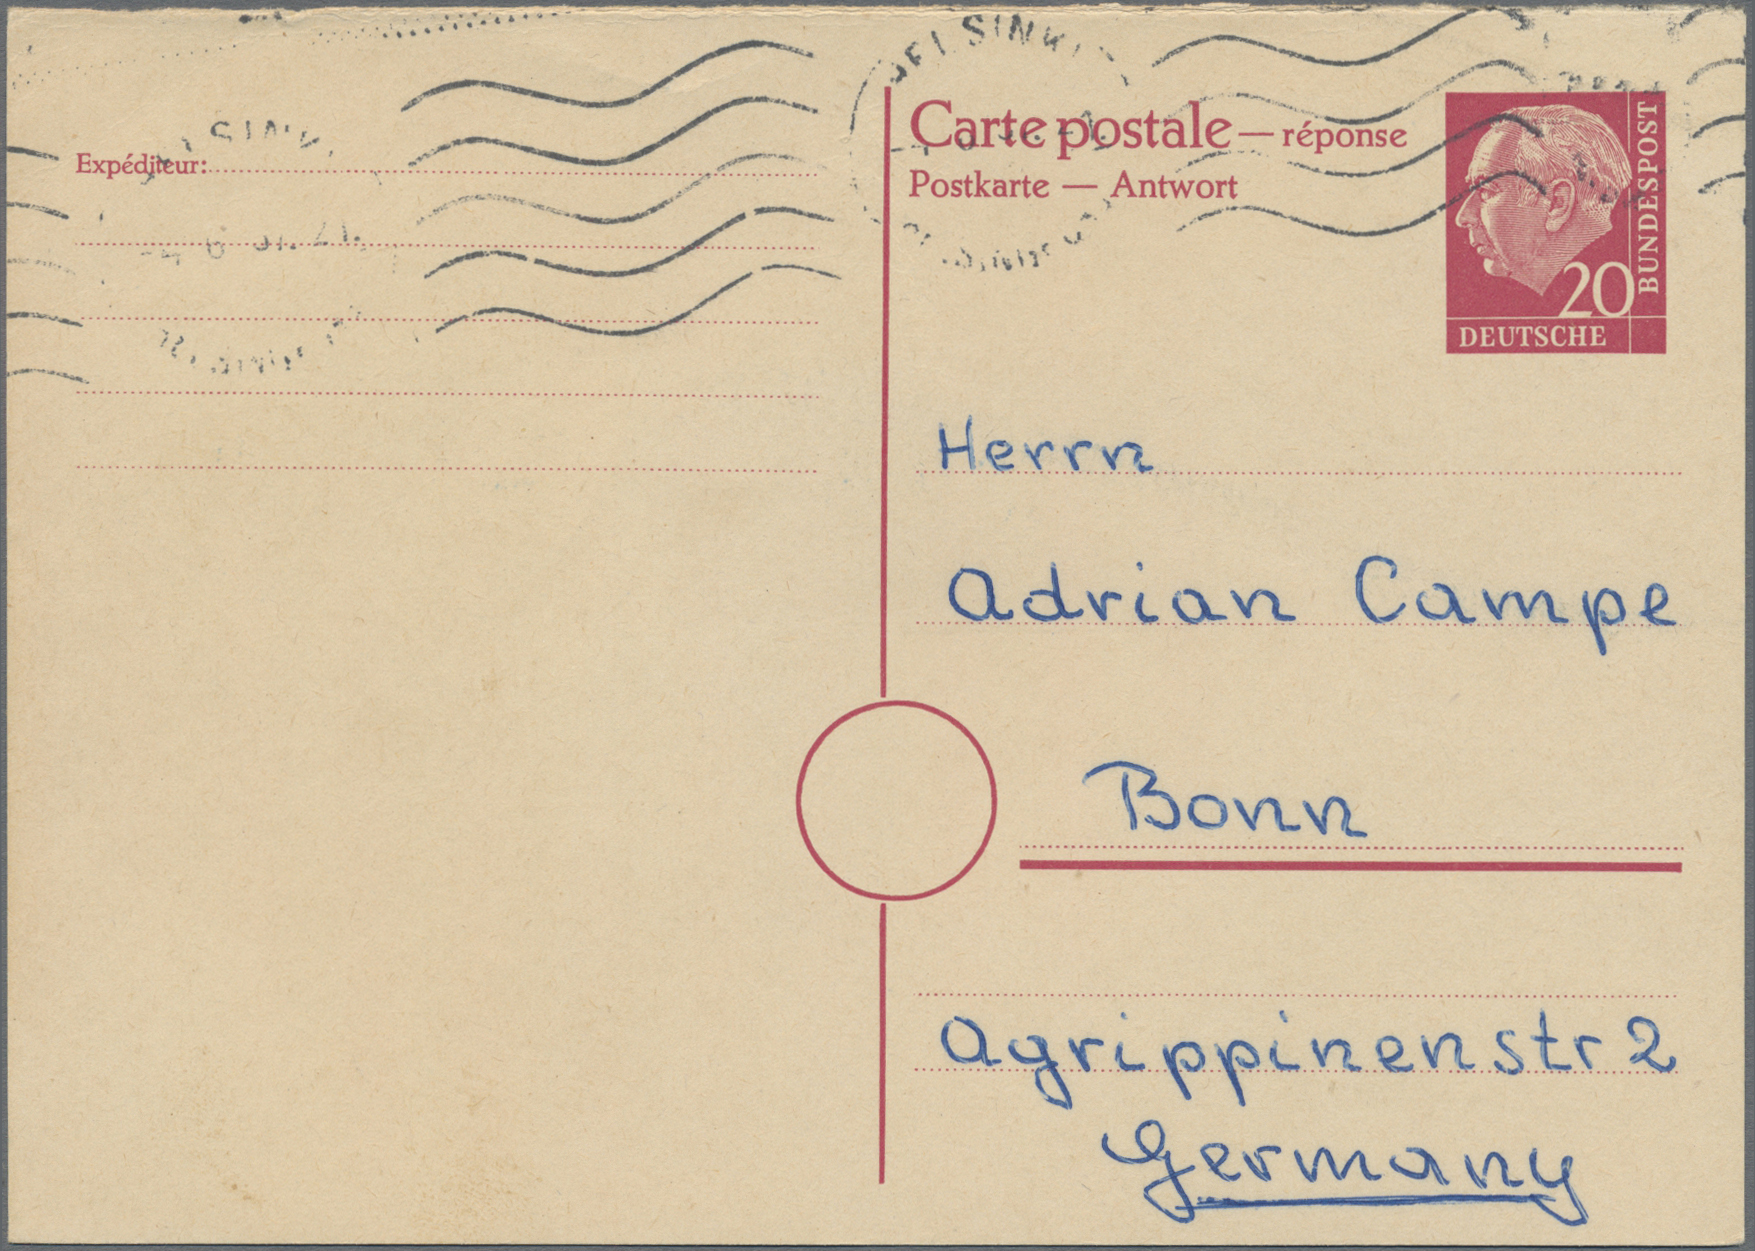 HELSINKI
Carte postale — réponse
Expéditeur:
Postkarte — Antwort
20
DEUTSCHE
BUNDESPOST
Herrn
Adrian Campe
Bonn
Agrippinenstr 2
Germany